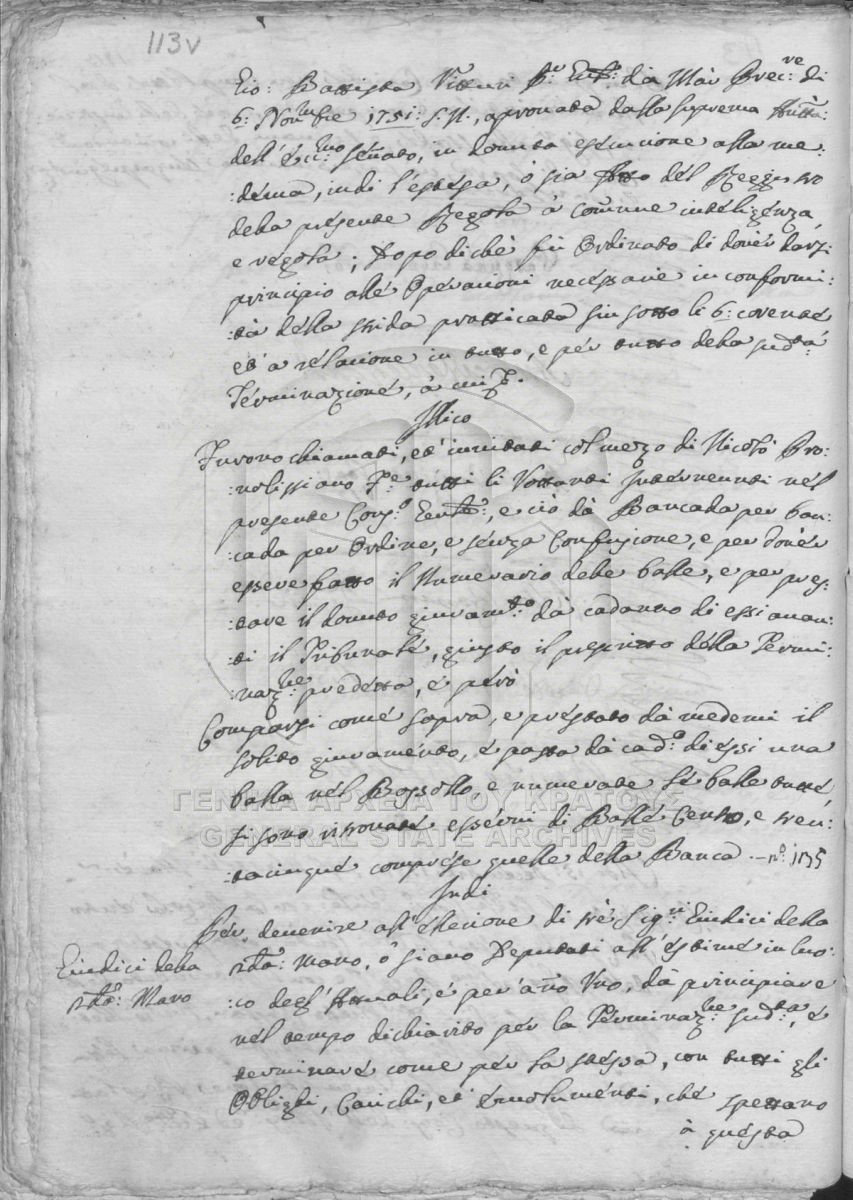 113v
Gio: Battista Vitturi Pr. Cap: da Mar Prec:te di
6: Novmbre 1751: S.N., aprovata dalla suprema Auttà:
dell'ecc:mo Senato, in dovuta esecuzione alla me-
:dema, indi l'estesa, ò sia Atto del Reggistro
della presente Regola à comune inteligenza,
e regola; Dopo di chè fù Ordinato di dover darsi
principio alle Operazioni necessarie in conformi:
:tà della strida pratticata sin sotto li 6: corente
et à relazione in tutto, e per tutto della sudta
Terminazione, à mi
Illico
Furono chiamati, et invitati col mezo di Nicolò Bro:
:nolissiano Fe tutti li Vottanti intervenuti nel
presente Consº: Genle:, e ciò dà Bancada per ban:
:cada per Ordine, e senza Confusione, e per dover
essere fatto il Numerario delle balle, e per pres:
:tare il dovuto giuramtº dà cadauno di essi avan:
:ti il Tribunale, giusto il prescritto della Termi:
:nazne: predetta, e però
Comparsi come sopra, e prestato dà medemi il
solito giuramento, e posta dà cadº: di essi una
balla nel Bossollo, e numerate le balle tutte,
si sono ritrovate esservi di Balle Cento, e tren:
:tacinque comprese quelle della Banca - nº: 135
ΓΕΝΙΚΑ ΑΡΧΕΙΑ ΤΟΥ ΚΡΑΤΟΥΣ
GENERAL STATE ARCHIVES
Indi
Per devenire all'elezione di trè Sigri Giudici della
Giudici della
pta: Mano
pta: Mano, ò siano Deputati all'estime in luo:
:co degl'Attuali, e per año Uno, dà principiare
nel tempo dichiarito per la Terminazne: sudta, e
terminare come per la stessa, con tutti gli
Oblighi, Carichi, et emolumenti, che spettano
à questa